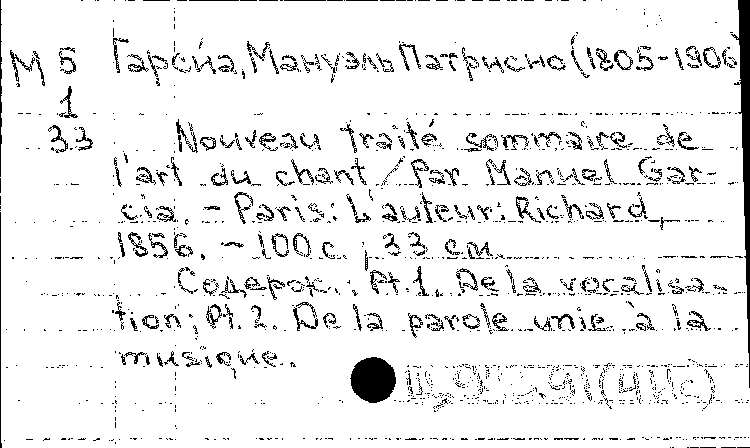 М 5 Гарсиа, Мануэль Патрисио (1805-1906)
1
33 Nouveau traité sommaire de
l'art du chant / Par Manuel Gar-
cia. - Paris: L'auteur: Richard,
1856. - 100 с.; 33 см.
Содерж.: Pt. 1. De la vocalisa-
tion; Pt. 2. De la parole unie à la
musique.